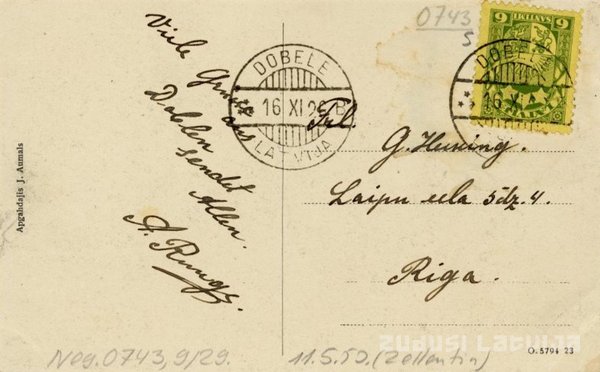 0743
S
6 LATVIJAS 6
DOBELE
16 XI 2
LATVIJA
DOBELE
16 XI 2 B
LATVIJA
Viele Grüsse
aus
Doblen
sendet
Allen
A. Runge.
Frl.
G. Huning.
Laipu eela 5 dz. 4.
Riga.
Apgahdajis J. Aumals
Neg. 0743, 9/29.
11.5.50. (Zellentin)
O. 5794 23
ZUDUSI LATVIJA